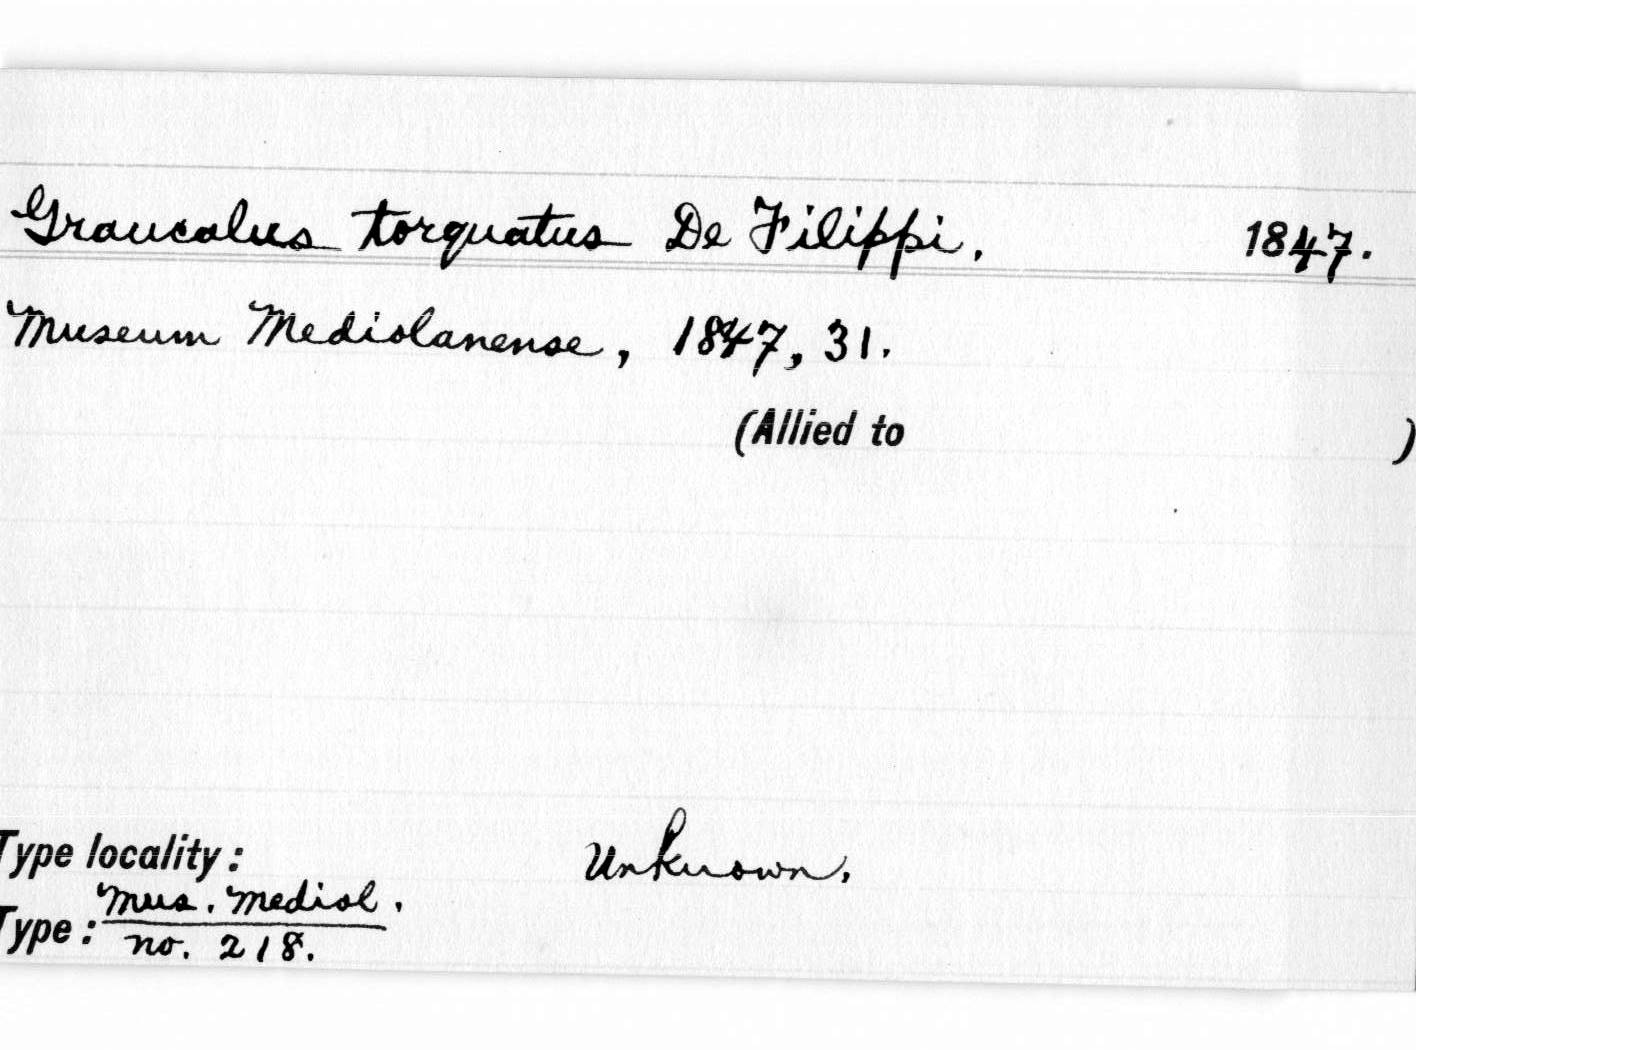 Graucalus torquatus De Filippi. 1847.
Museum Mediolanense, 1847, 31.
(Allied to )
Type locality: Unknown.
Type: Mus. Mediol.
no. 218.